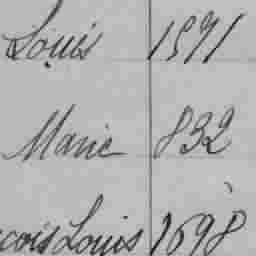 Louis 1571
Marie 832
çois Louis 1698